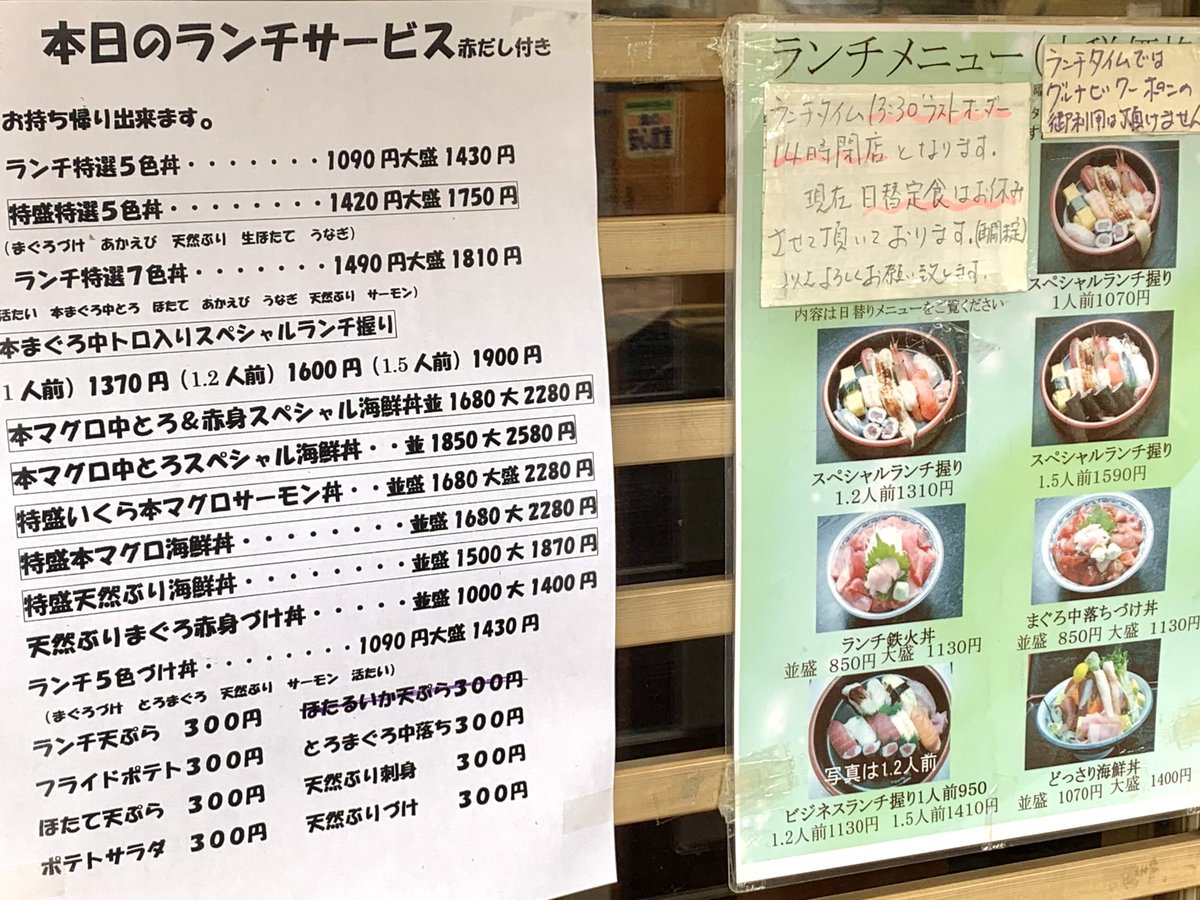 本日のランチサービス赤だし付き
お持ち帰り出来ます。
ランチ特選5色丼・・・・・・・1090円大盛1430円
特盛特選5色丼・・・・・・・・1420円大盛1750円
(まぐろづけ あかえび 天然ぶり 生ほたて うなぎ)
ランチ特選7色丼・・・・・・・1490円大盛1810円
活たい 本まぐろ中とろ ほたて あかえび うなぎ 天然ぶり サーモン)
本まぐろ中トロ入りスペシャルランチ握り
1人前)1370円(1.2人前)1600円(1.5人前)1900円
本マグロ中とろ&赤身スペシャル海鮮丼並1680大2280円
本マグロ中とろスペシャル海鮮丼・・並1850大2580円
特盛いくら本マグロサーモン丼・・並盛1680大盛2280円
特盛本マグロ海鮮丼・・・・・・・並盛1680大2280円
特盛天然ぶり海鮮丼・・・・・・・・並盛1500大1870円
天然ぶりまぐろ赤身づけ丼・・・・・並盛1000大1400円
ランチ5色づけ丼・・・・・・・・1090円大盛1430円
(まぐろづけ とろまぐろ 天然ぶり サーモン 活たい)
ランチ天ぷら 300円 ほたるいか天ぷら300円
フライドポテト300円 とろまぐろ中落ち300円
ほたて天ぷら 300円 天然ぶり刺身 300円
ポテトサラダ 300円 天然ぶりづけ 300円
ランチメニュー(
ランチタイムでは
グルナビクーポンの
御利用は頂けません
ランチタイム13:30ラストオーダー
14時閉店となります。
現在日替定食はお休み
させて頂いております。
以上よろしくお願い致します。
内容は日替りメニューをご覧ください
スペシャルランチ握り
1人前1070円
スペシャルランチ握り
1.2人前1310円
スペシャルランチ握り
1.5人前1590円
ランチ鉄火丼
並盛 850円 大盛 1130円
まぐろ中落ちづけ丼
並盛 850円 大盛 1130円
写真は1.2人前
ビジネスランチ握り1人前950
1.2人前1130円 1.5人前1410円
どっさり海鮮丼
並盛 1070円 大盛 1400円